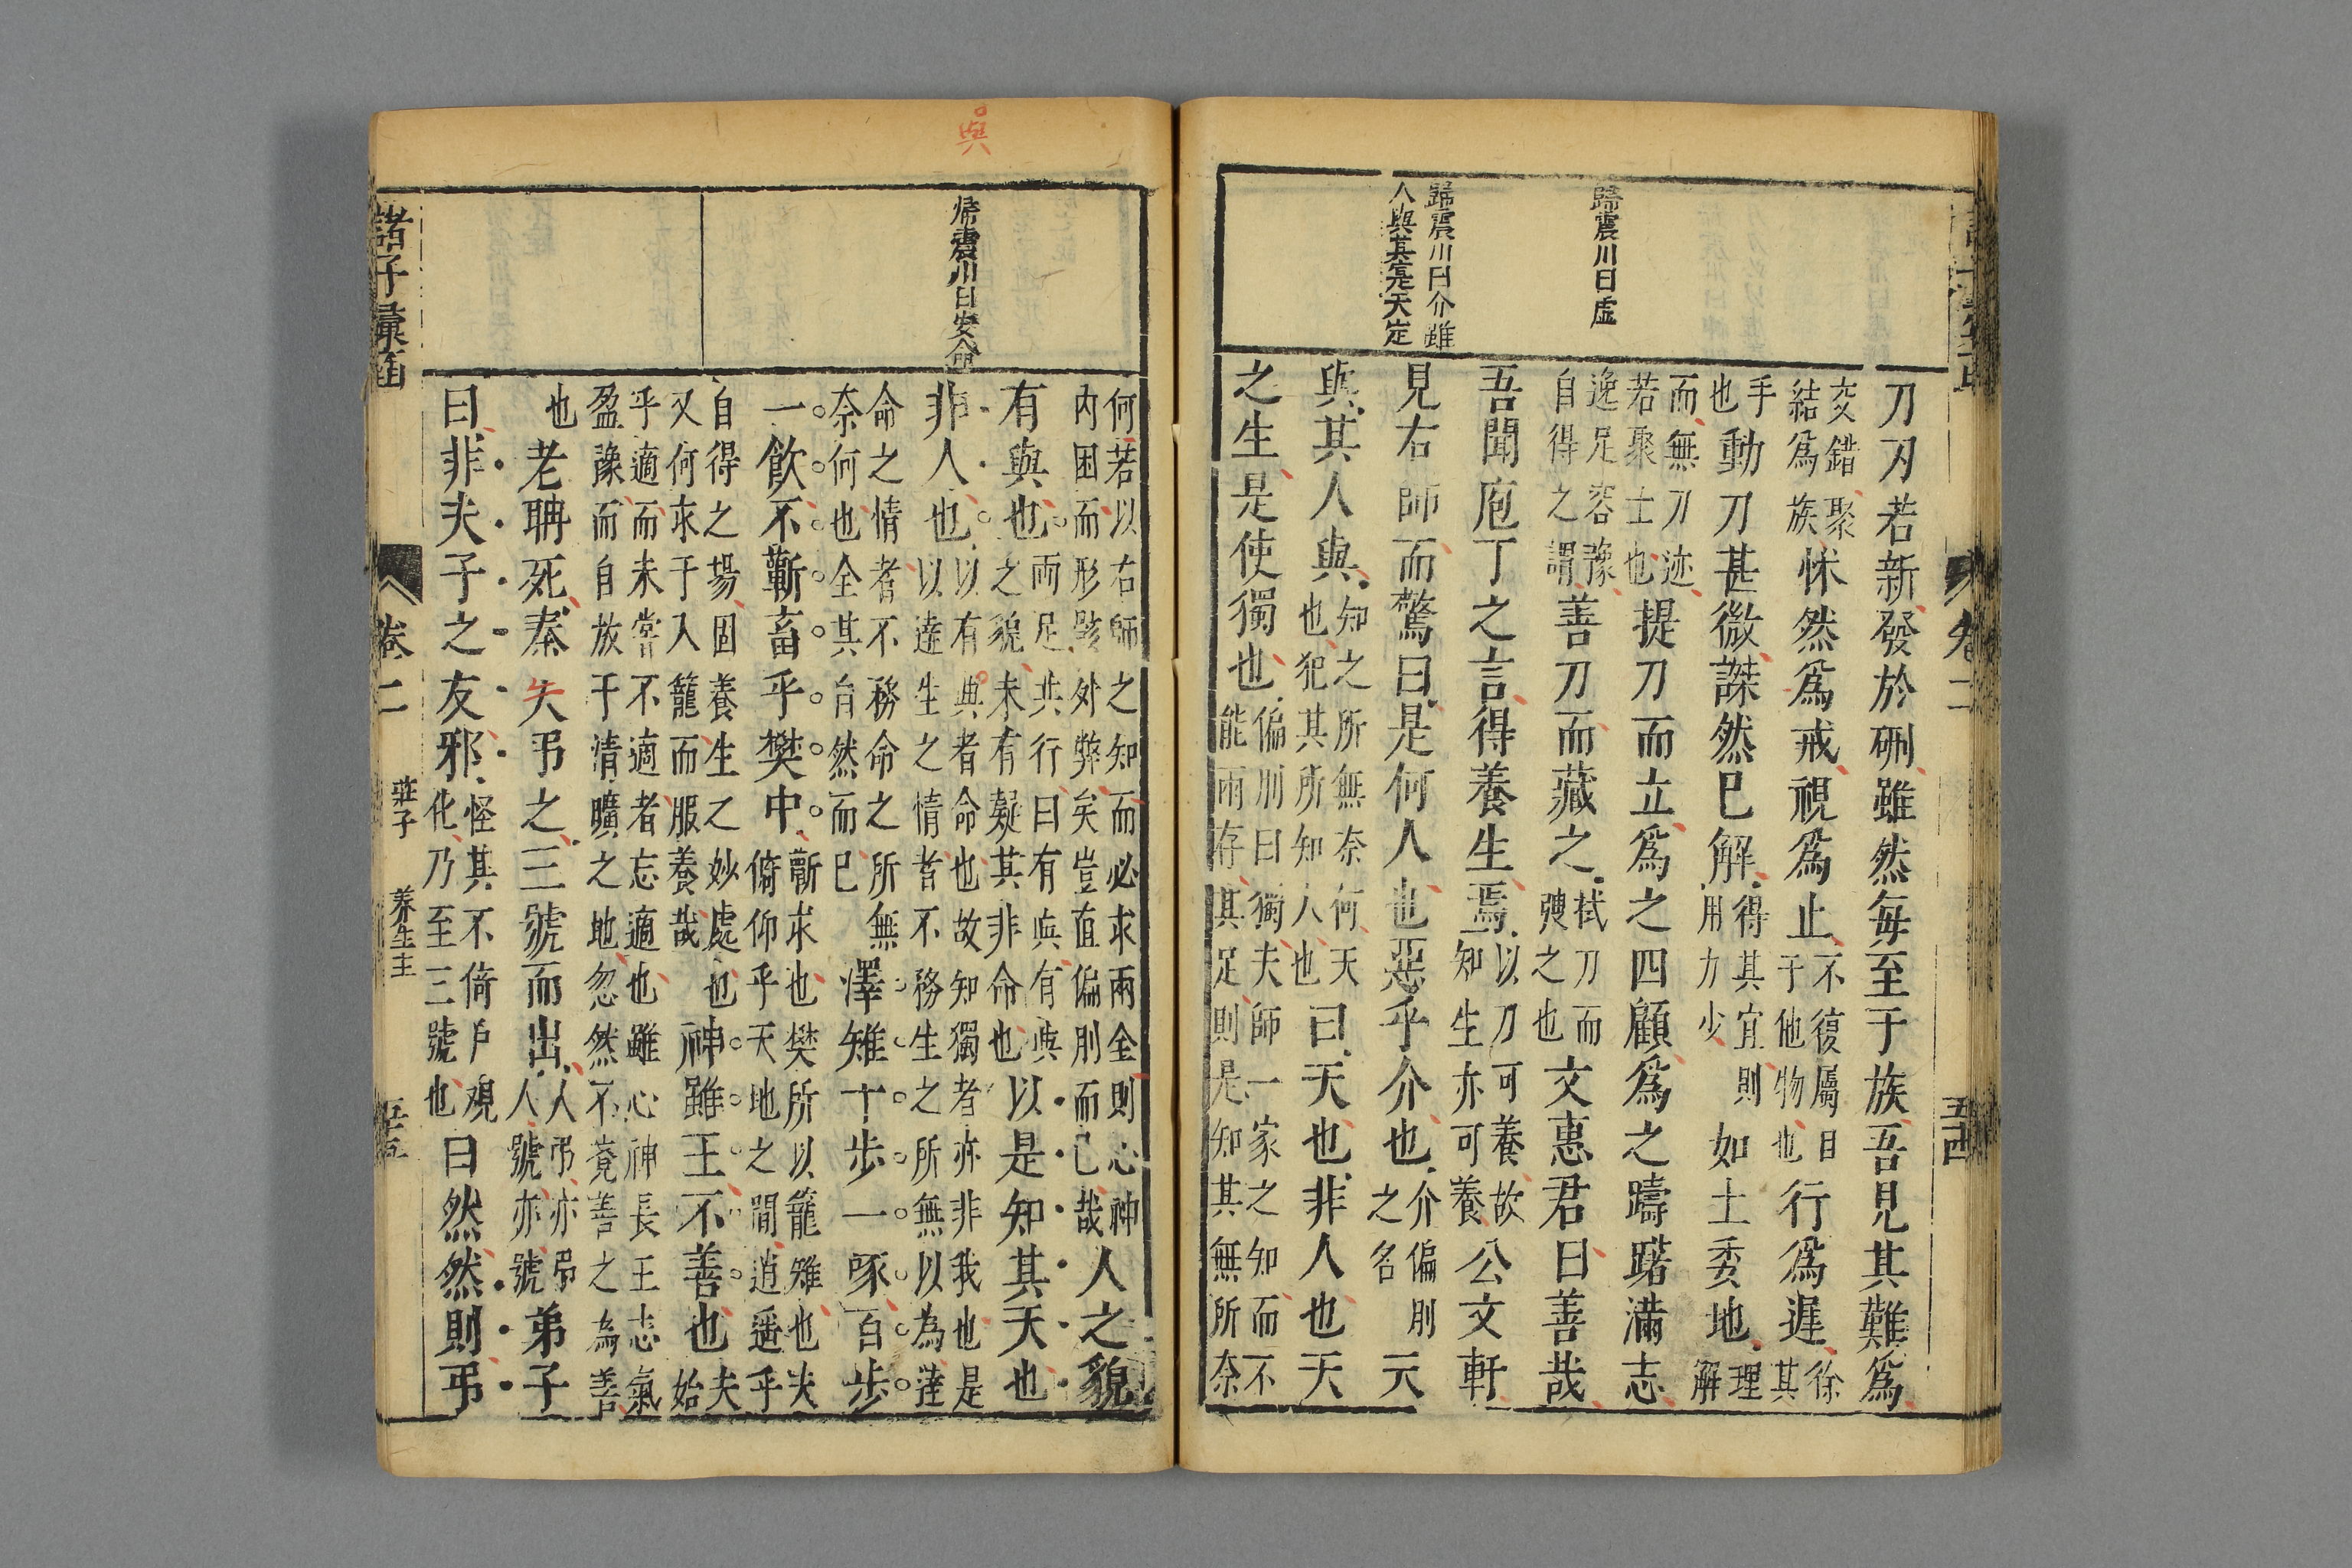 歸震川曰虛
歸震川曰介雖
人與其寔天定
刀刃若新發於硎雖然每至于族吾見其難爲
交錯聚結爲族怵然爲戒視爲止不復屬目于他物也行爲遲徐其
手也動刀甚微謋然已解得其宜則用力少如土委地理解
而無刀迹若聚士也提刀而立爲之四顧爲之躊躇滿志
逸足容豫自得之謂善刀而藏之拭刀而弢之也文惠君曰善哉
吾聞庖丁之言得養生焉以刀可養故知生亦可養公文軒
見右師而驚曰是何人也惡乎介也介偏刖之名天
與其人與知之所無奈何天也犯其所知人也曰天也非人也天
之生是使獨也偏刖曰獨夫師一家之知而不能兩存其足則是知其無所奈
卷二
五四
吳
帰震川曰安命
何若以右師之知而必求兩全則心神内困而形骸外弊矣豈直偏刖而已哉人之貌
有與也兩足共行曰有與有與之貌未有疑其非命也以是知其天也
非人也以有與者命也故知獨者亦非我也是以達生之情者不務生之所無以為達
命之情者不務命之所無奈何也全其自然而已澤雉十步一啄百步
一飲不蘄畜乎樊中蘄求也樊所以籠雉也夫俯仰乎天地之間逍遥乎
自得之場固養生之妙處也又何求于入籠而服養哉神雖王不善也夫始
乎適而未嘗不適者忘適也雖心神長王志氣盈豫而自放于清曠之地忽然不覺善之為善
也老聃死秦失弔之三號而出人弔亦弔人號亦號弟子
曰非夫子之友邪怪其不倚戶觀化乃至三號也曰然然則弔
諸子彙函
卷二
莊子
養生主
五五